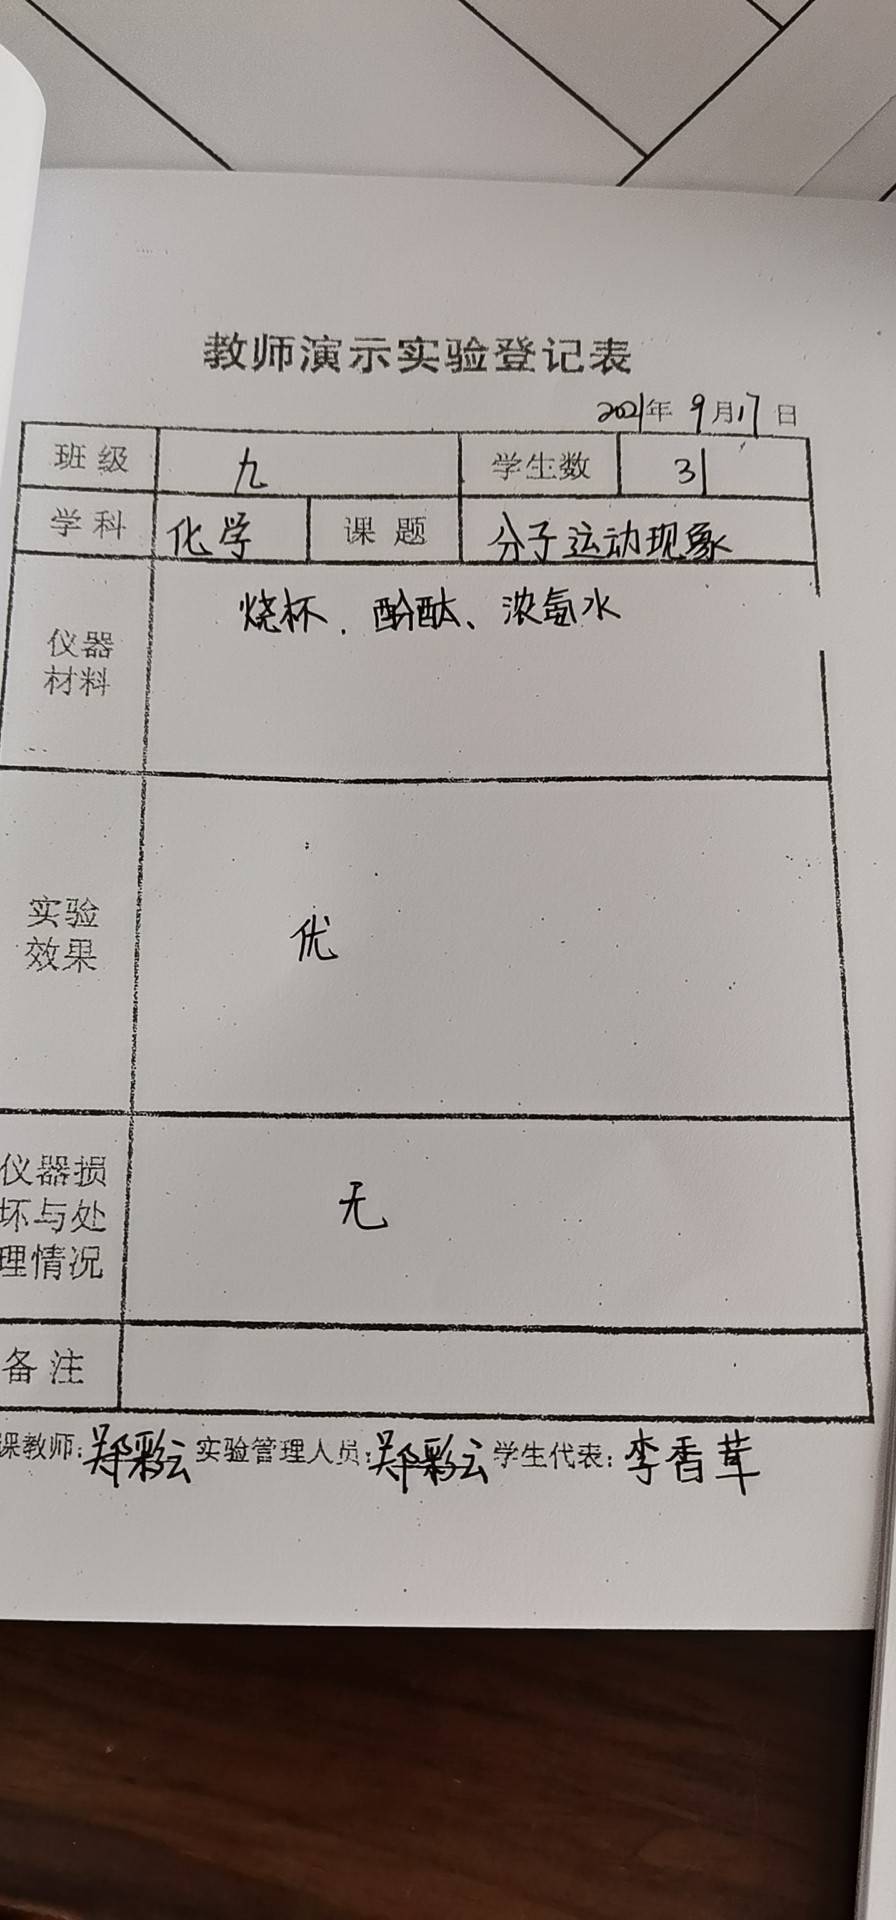 教师演示实验登记表
2021年 9月17日
班级 九 学生数 31
学科 化学 课题 分子运动现象
仪器材料 烧杯、酚酞、浓氨水
实验效果 优
仪器损坏与处理情况 无
备注
课教师:郑彩云 实验管理人员:郑彩云 学生代表:李香茸